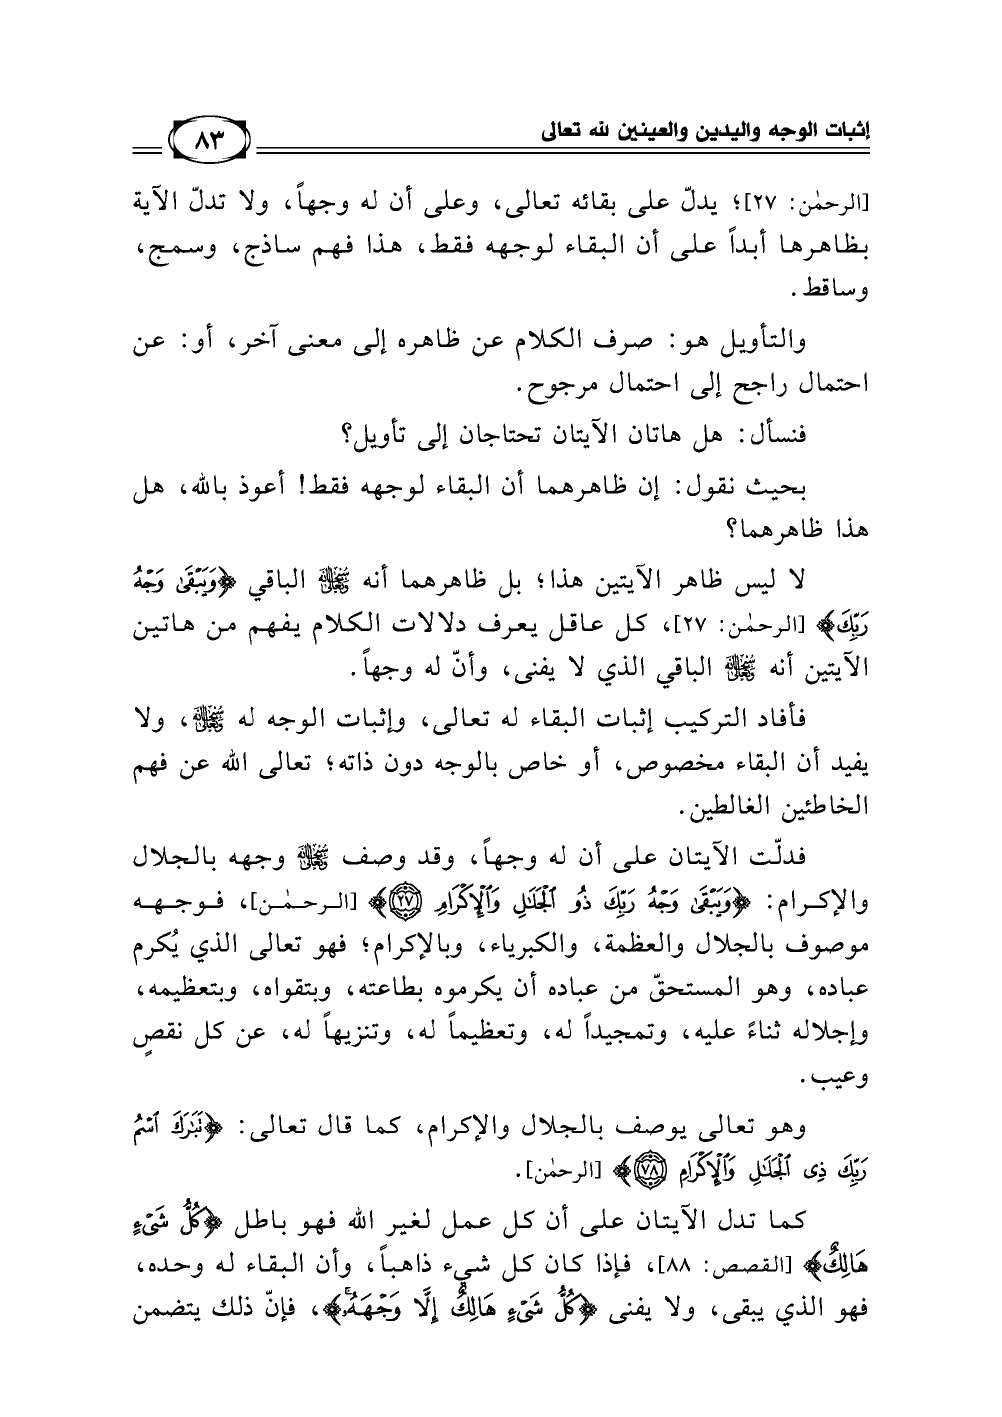 إثبات الوجه واليدين والعينين لله تعالى
٨٣
[الرحمٰن: ٢٧]؛ يدلّ على بقائه تعالى، وعلى أن له وجهاً، ولا تدلّ الآية
بظاهرها أبداً على أن البقاء لوجهه فقط، هذا فهم ساذج، وسمج،
وساقط.
والتأويل هو: صرف الكلام عن ظاهره إلى معنى آخر، أو: عن
احتمال راجح إلى احتمال مرجوح.
فنسأل: هل هاتان الآيتان تحتاجان إلى تأويل؟
بحيث نقول: إن ظاهرهما أن البقاء لوجهه فقط! أعوذ بالله، هل
هذا ظاهرهما؟
لا ليس ظاهر الآيتين هذا؛ بل ظاهرهما أنه ﷾ الباقي ﴿وَيَبْقَىٰ وَجْهُ
رَبِّكَ﴾ [الرحمٰن: ٢٧]، كل عاقل يعرف دلالات الكلام يفهم من هاتين
الآيتين أنه ﷾ الباقي الذي لا يفنى، وأنّ له وجهاً.
فأفاد التركيب إثبات البقاء له تعالى، وإثبات الوجه له ﷾، ولا
يفيد أن البقاء مخصوص، أو خاص بالوجه دون ذاته؛ تعالى الله عن فهم
الخاطئين الغالطين.
فدلّت الآيتان على أن له وجهاً، وقد وصف ﷾ وجهه بالجلال
والإكرام: ﴿وَيَبْقَىٰ وَجْهُ رَبِّكَ ذُو ٱلْجَلَٰلِ وَٱلْإِكْرَامِ ٢٧﴾ [الرحمٰن]، فوجهه
موصوف بالجلال والعظمة، والكبرياء، وبالإكرام؛ فهو تعالى الذي يُكرم
عباده، وهو المستحقّ من عباده أن يكرموه بطاعته، وبتقواه، وبتعظيمه،
وإجلاله ثناءً عليه، وتمجيداً له، وتعظيماً له، وتنزيهاً له، عن كل نقصٍ
وعيب.
وهو تعالى يوصف بالجلال والإكرام، كما قال تعالى: ﴿تَبَٰرَكَ ٱسْمُ
رَبِّكَ ذِى ٱلْجَلَٰلِ وَٱلْإِكْرَامِ ٧٨﴾ [الرحمٰن].
كما تدل الآيتان على أن كل عمل لغير الله فهو باطل ﴿كُلُّ شَىْءٍ
هَالِكٌ﴾ [القصص: ٨٨]، فإذا كان كل شيء ذاهباً، وأن البقاء له وحده،
فهو الذي يبقى، ولا يفنى ﴿كُلُّ شَىْءٍ هَالِكٌ إِلَّا وَجْهَهُۥ﴾، فإنّ ذلك يتضمن